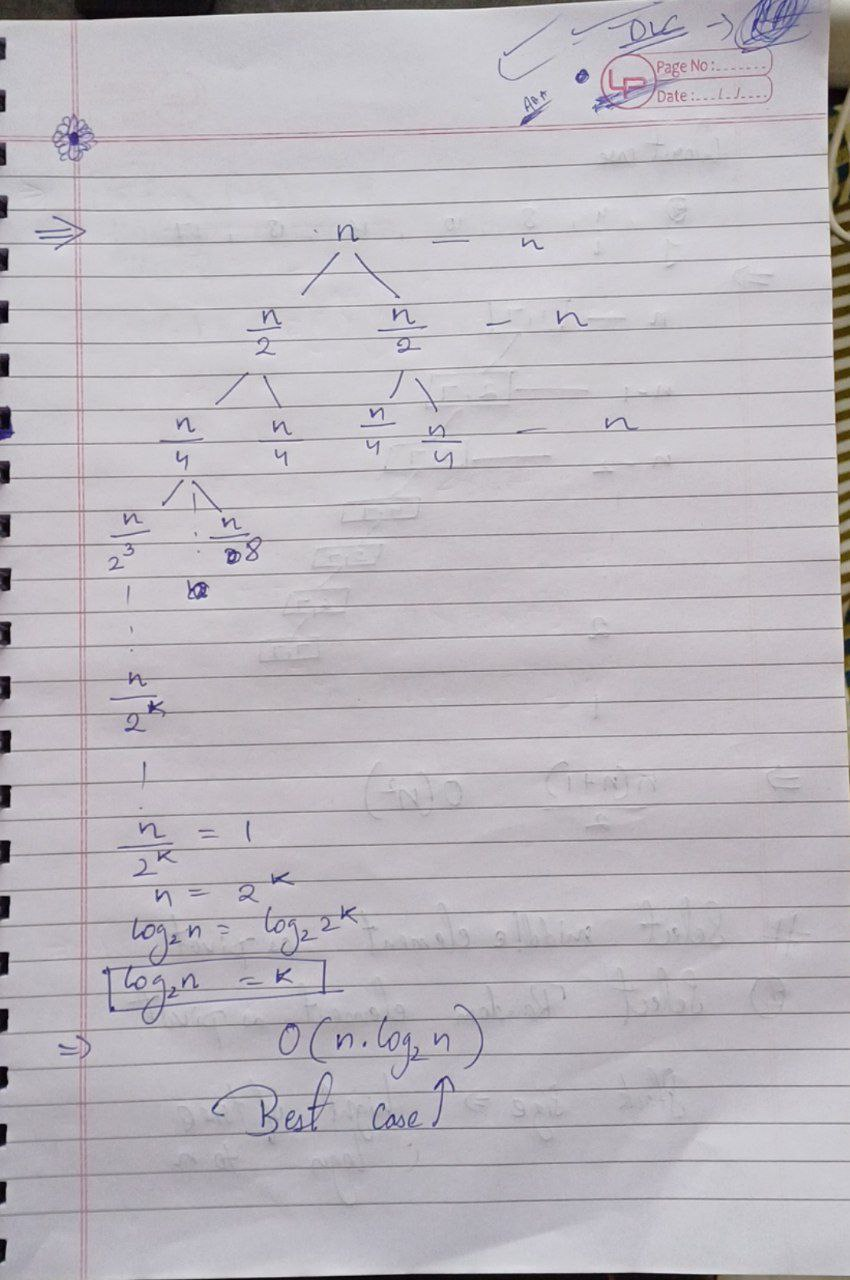 DLC →
LP Page No :.......
Date : .../.../....
⇒ n — n
n/2 n/2 — n
n/4 n/4 n/4 n/4 — n
n/2³ n/8
n/2ᴷ
n/2ᴷ = 1
n = 2ᴷ
log₂n = log₂2ᴷ
log₂n = K
⇒ O(n.log₂n)
Best Case